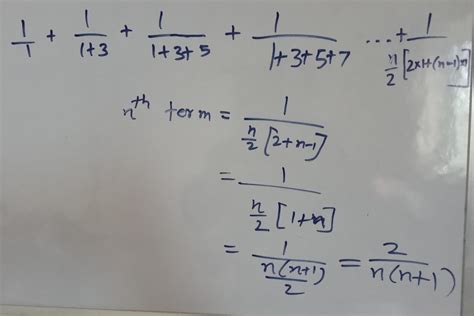 1/1 + 1/1+3 + 1/1+3+5 + 1/1+3+5+7 ...+ 1/n/2[2×1+(n-1)×1]
nth term = 1/n/2[2+n-1]
= 1/n/2[1+n]
= 1/n(n+1)/2 = 2/n(n+1)